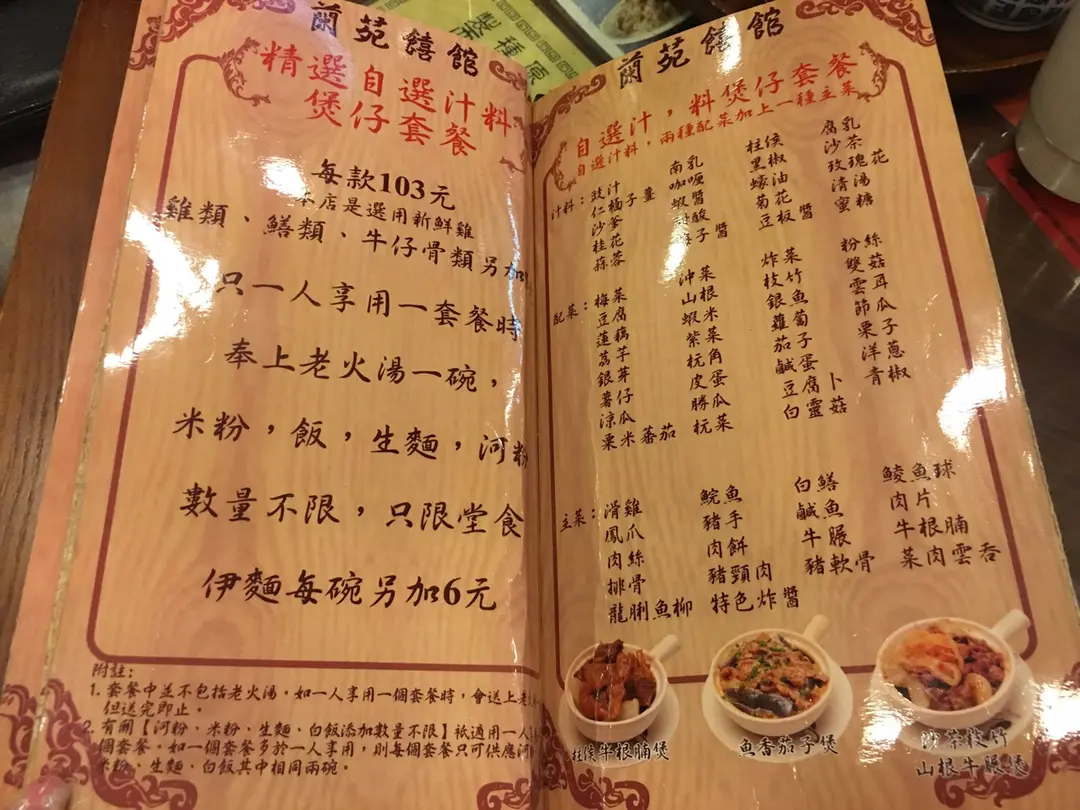 蘭苑饎館
精選自選汁料
煲仔套餐
每款103元
本店是選用新鮮雞
雞類、鱔類、牛仔骨類另加
只一人享用一套餐時
奉上老火湯一碗，
米粉，飯，生麵，河粉
數量不限，只限堂食
伊麵每碗另加6元
附註：
1. 套餐中並不包括老火湯。如一人享用一個套餐時，會送上老
但送完即止。
2. 有關【河粉、米粉、生麵、白飯添加數量不限】祇適用一人
個套餐。如一個套餐多於一人享用，則每個套餐只可供應河
米粉、生麵、白飯其中相同兩碗。
蘭苑饎館
自選汁，料煲仔套餐
自選汁料，兩種配菜加上一種主菜
汁料：豉汁 南乳 柱侯 腐乳
仁稔子薑 咖喱 黑椒 沙茶
沙爹 蝦醬 蠔油 玫瑰花
桂花 酸 菊花 清湯
蒜蓉 子醬 豆板醬 蜜糖
配菜：梅菜 沖菜 炸菜 粉絲
豆腐 山根 枝竹 雙菇
蓮藕 蝦米 銀魚 雲耳
荔芋 紫菜 蘿蔔 節瓜
銀芽 杬角 茄子 栗子
薯仔 皮蛋 鹹蛋 洋蔥
涼瓜 勝瓜 豆腐卜 青椒
粟米蕃茄 杬菜 白靈菇
主菜：滑雞 鯇魚 白鱔 鯪魚球
鳳爪 豬手 鹹魚 肉片
肉絲 肉餅 牛脤 牛根腩
排骨 豬頸肉 豬軟骨 菜肉雲吞
龍脷魚柳 特色炸醬
柱侯牛根腩煲
魚香茄子煲
沙茶枝竹
山根牛脤煲